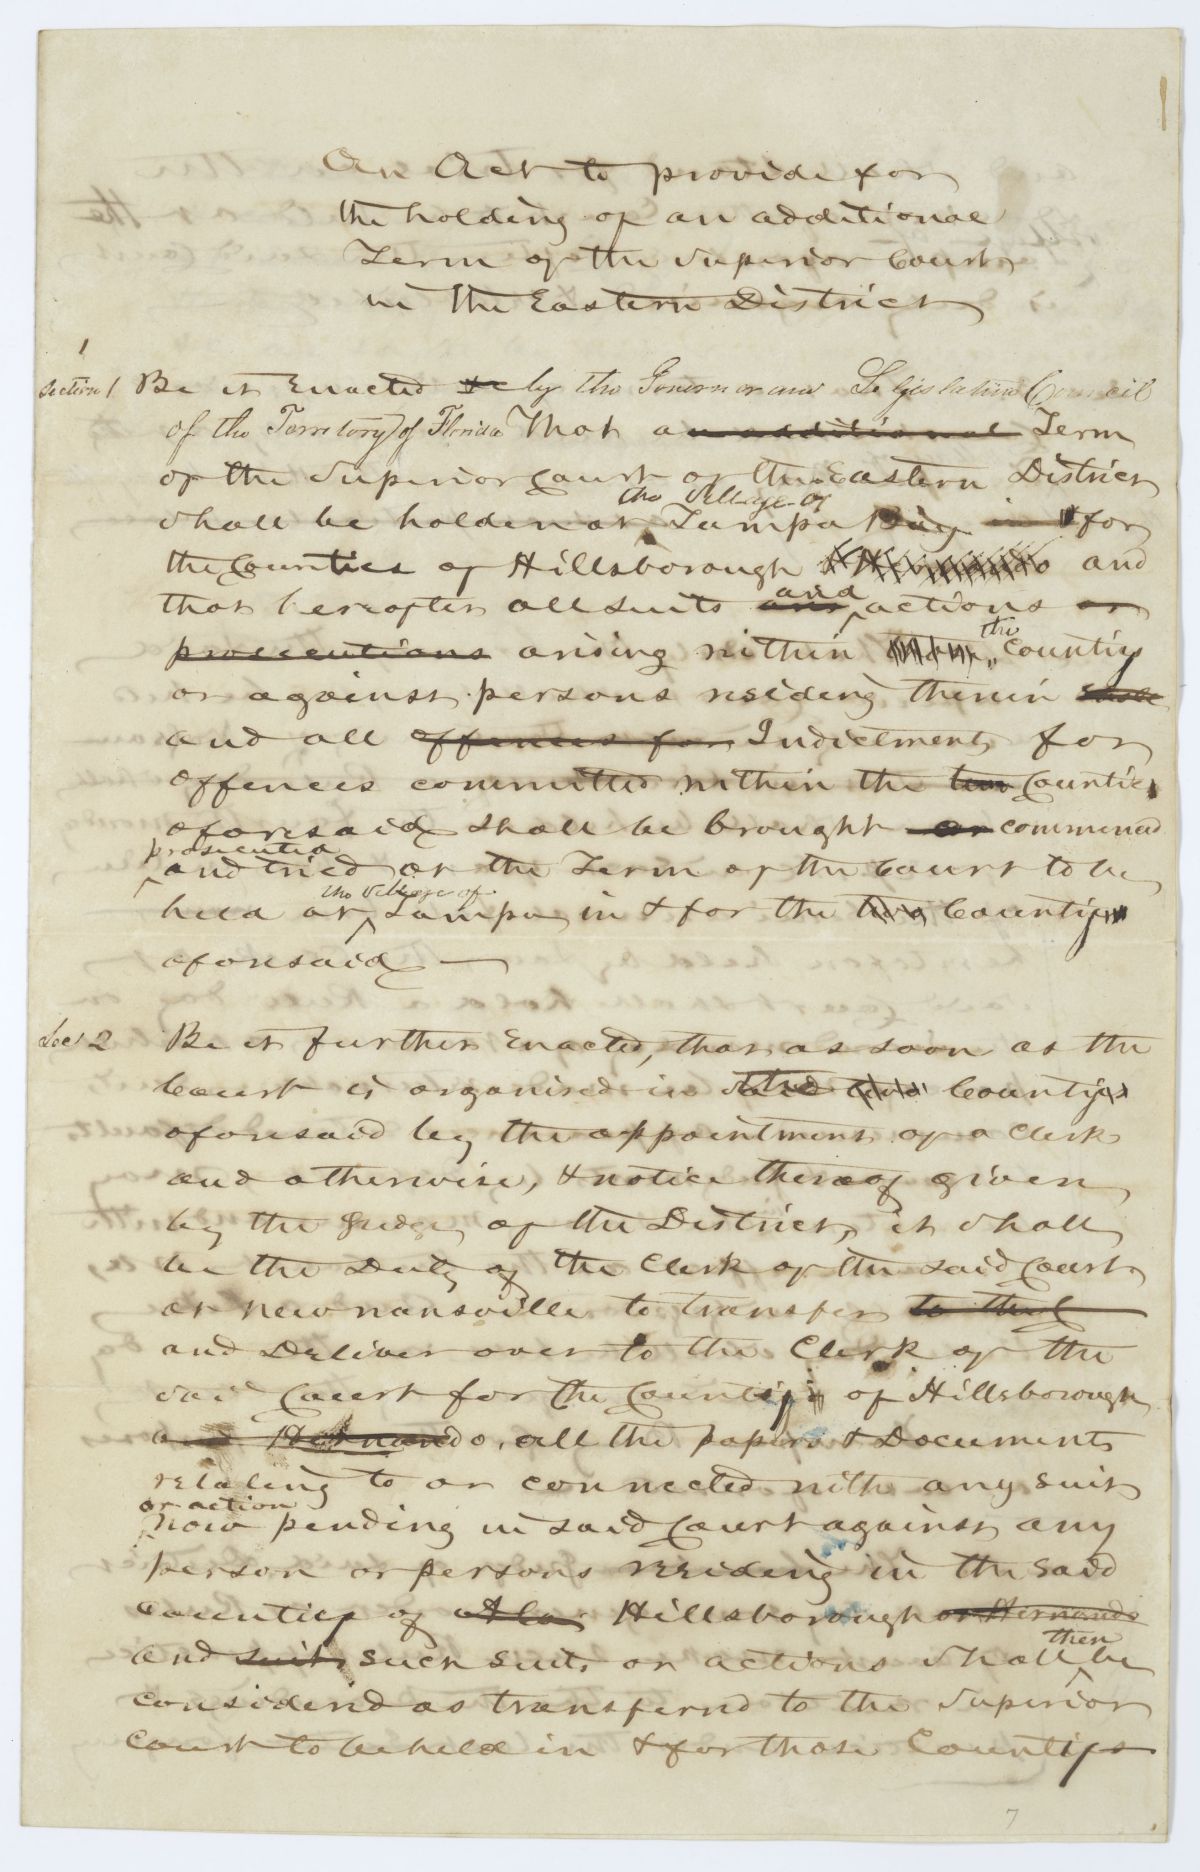 An Act to provide for
the holding of an additional
Term of the Superior Court
in the Eastern District
Section 1 Be it Enacted by the Governor and Legislative Council
of the Territory of Florida That an additional Term
of the Superior Court of the Eastern District
the Village of
shall be holden at Tampa Bay in & for
the Counties of Hillsborough & Hernando and
and
that hereafter all suits actions or
the
prosecutions arising within County
or against persons residing therein shall
and all offences for Indictments for
offences committed within the two Counties
aforesaid shall be brought or commenced
prosecuted
and tried at the Term of the Court to be
the Village of
held at Tampa in & for the two County
aforesaid —
Sec 2 Be it further Enacted, that as soon as the
Court is organised in the two County
aforesaid by the appointment of a Clerk
and otherwise, & notice thereof given
by the Judge of the District, it shall
be the Duty of the Clerk of the said Court
at Newnansville to transfer to the
and Deliver over to the Clerk of the
said Court for the County of Hillsborough
and Hernando, all the papers & Documents
relating to or connected with any suit
or action
now pending in said Court against any
person or persons residing in the said
County of Ala Hillsborough or Hernando
then
and suits such suits or actions shall be
considerd as transferrd to the Superior
Court to be held in & for those County
7